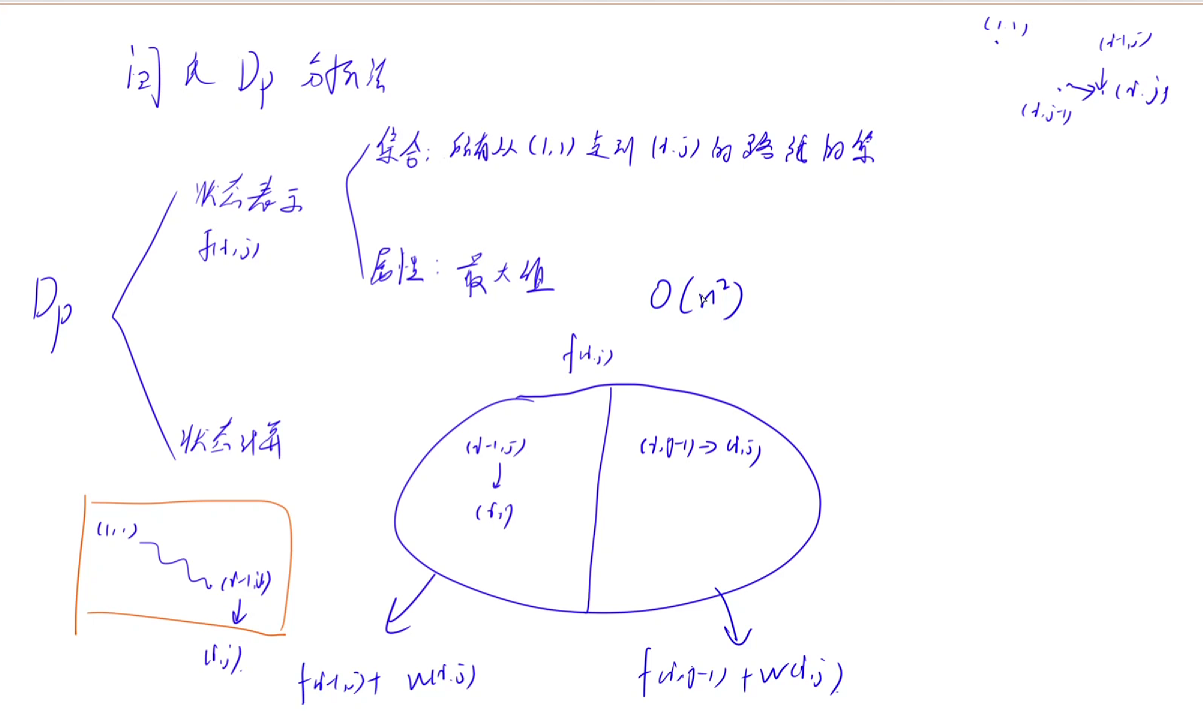 闫氏 Dp 分析法
(1,1)
(i-1,j)
(i,j)
(i,j-1)
集合: 所有从 (1,1) 走到 (i.j) 的路径的集
状态表示
f(i,j)
属性: 最大值
O(n²)
Dp
f(i,j)
状态计算
(i-1,j)
(i,j-1)→(i,j)
(i,j)
(1,1)
(i-1,j)
(i,j)
f(i-1,j)+ w(i.j)
f(i,j-1) +w(i,j)